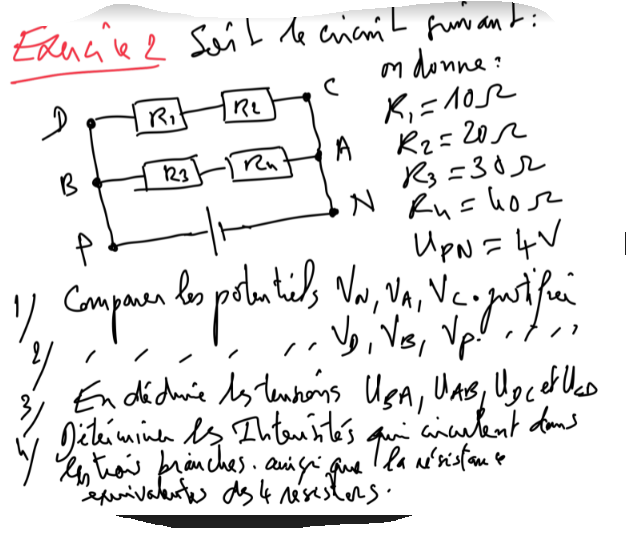 Exercice 2 Soit le circuit suivant :
on donne :
D R1 R2 C
R1 = 10Ω
R2 = 20Ω
B R3 R4 A
R3 = 30Ω
R4 = 40Ω
P N
UPN = 4V
1/ Comparer les potentiels VN, VA, VC. justifier
2/ ,, ,, ,, ,, ,, VD, VB, VP. ,, ,, ,,
3/ En déduire les tensions UBA, UAB, UDC et UCD
4/ Déterminer les Intensités qui circulent dans
les trois branches. ainsi que la résistance
equivalentes des 4 resistors.